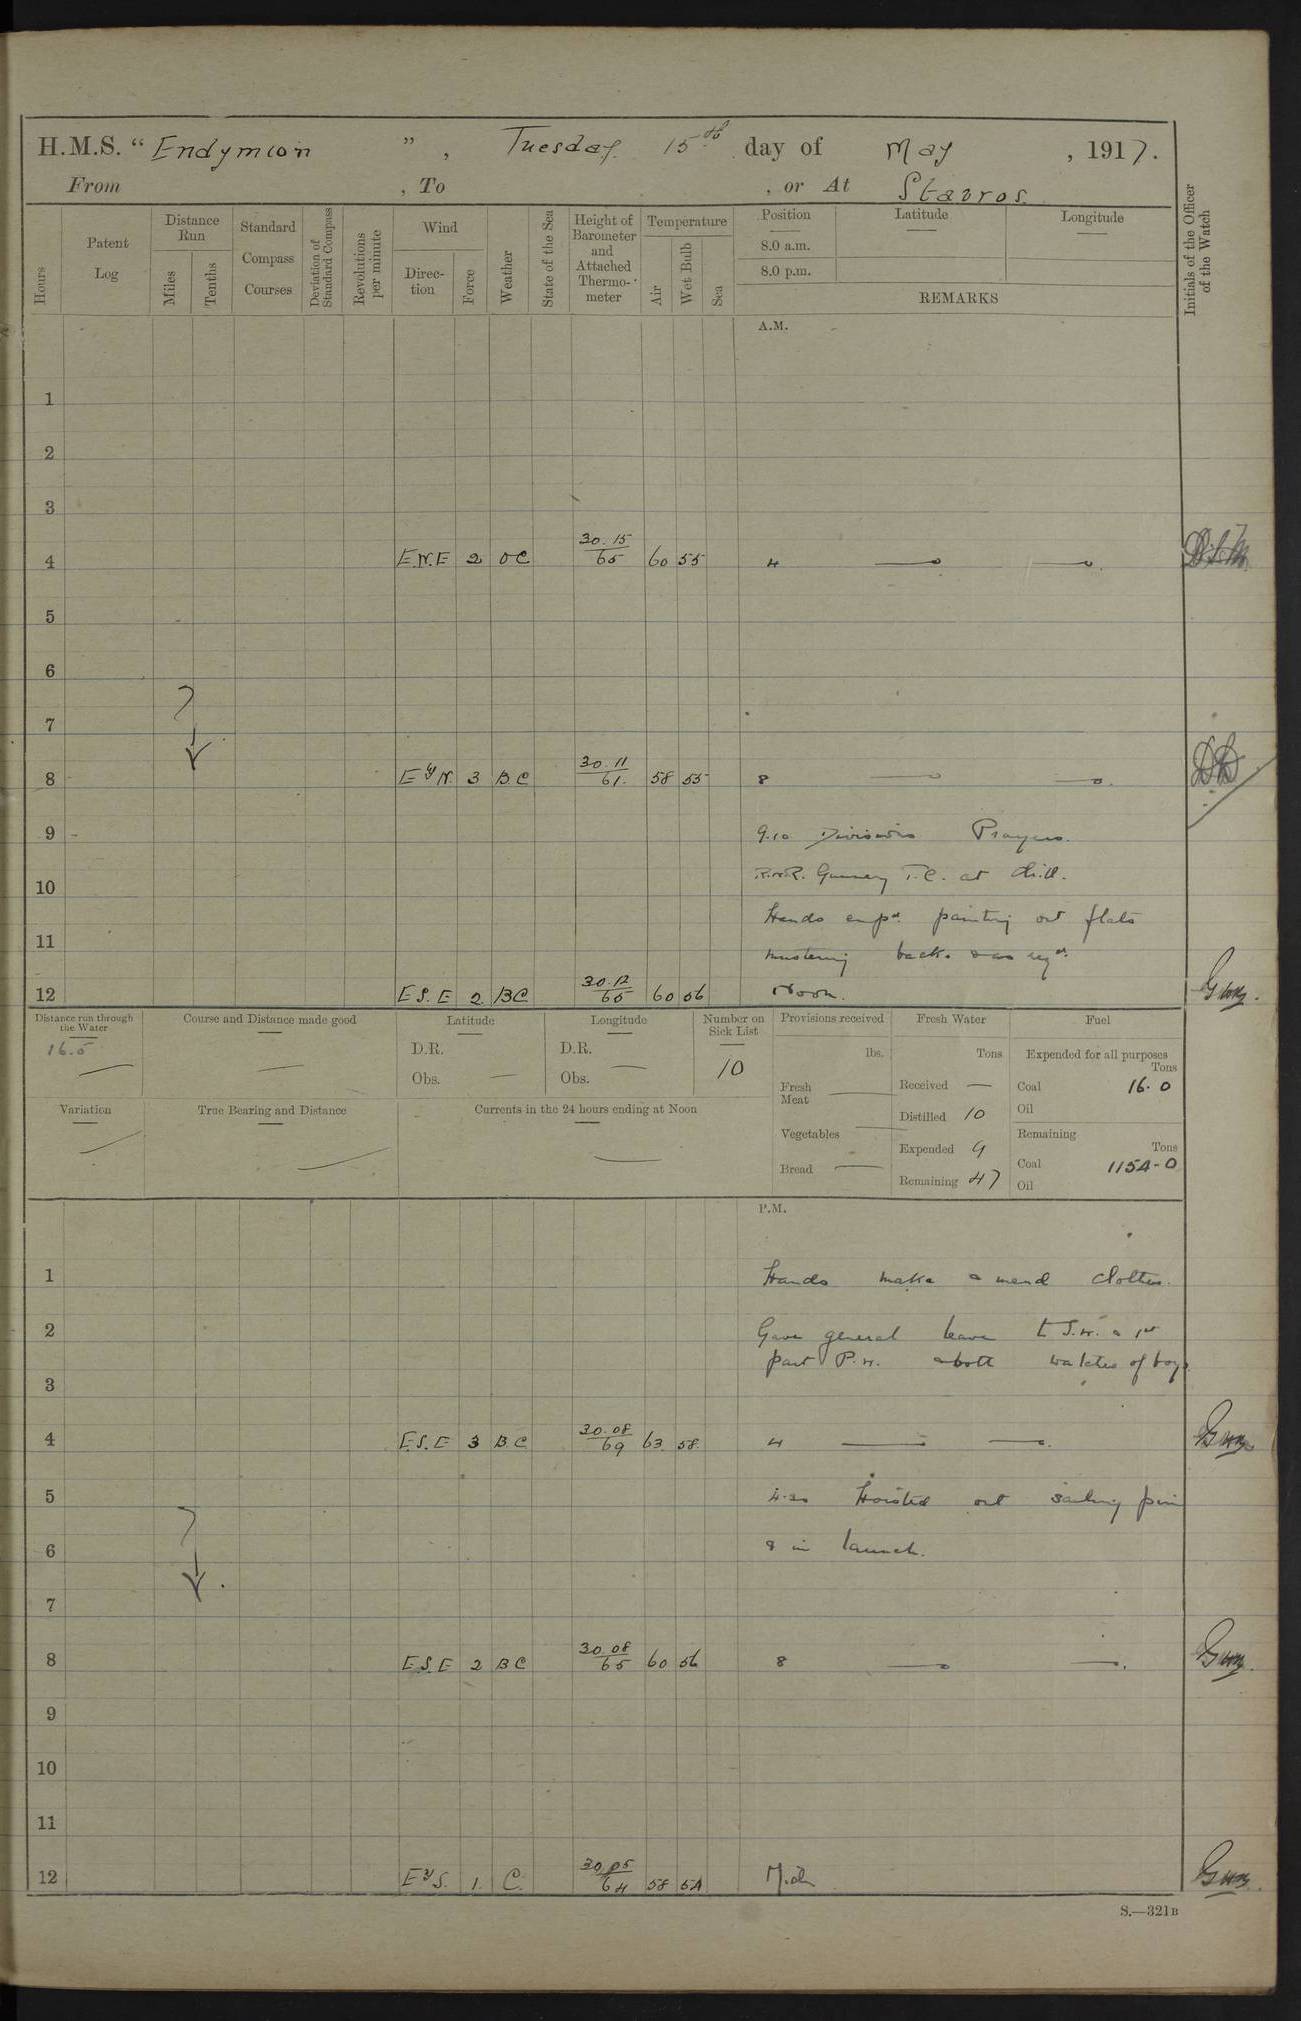 H.M.S. “ Endymion ” , Tuesday 15th day of May , 1917.
From , To , or At Stavros
Hours
Patent Log
Distance Run
Miles
Tenths
Standard Compass Courses
Deviation of Standard Compass
Revolutions per minute
Wind
Direc- tion
Force
Weather
State of the Sea
Height of Barometer and Attached Thermo- meter
Temperature
Air
Wet Bulb
Sea
Position
8.0 a.m.
8.0 p.m.
Latitude
Longitude
REMARKS
Initials of the Officer of the Watch
A.M.
1
2
3
4 E.N.E 2 OC 30.15/65 60 55 4
5
6
7
8 E by N. 3 BC 30.11/61. 58 55 8
9 9.10 Divisions Prayers.
R.N.R. Gunnery T.C. at drill.
10
Hands empd. painting out flats
11
mustering
12 E.S.E 2 BC 30.12/65 60 56 Noon.
Distance run through the Water
16.5
Course and Distance made good
Latitude
D.R.
Obs.
Longitude
D.R.
Obs.
Number on Sick List
10
Provisions received
lbs.
Fresh Meat
Vegetables
Bread
Fresh Water
Tons
Received
Distilled 10
Expended 9
Remaining 47
Fuel
Expended for all purposes
Tons
Coal 16.0
Oil
Remaining
Tons
Coal 1154-0
Oil
Variation
True Bearing and Distance
Currents in the 24 hours ending at Noon
P.M.
1 Hands make & mend clothes.
2 Gave general leave to S.W. & 1st
part P.W. & both watches of boys.
3
4 E.S.E 3 B.C 30.08/69 63 58 4
5 4.30 Hoisted out sailing pin
6 & in launch.
7
8 E.S.E 2 BC 30.08/65 60 56 8
9
10
11
12 E by S. 1. C. 30.05/64 58 54 Mid
S.—321B